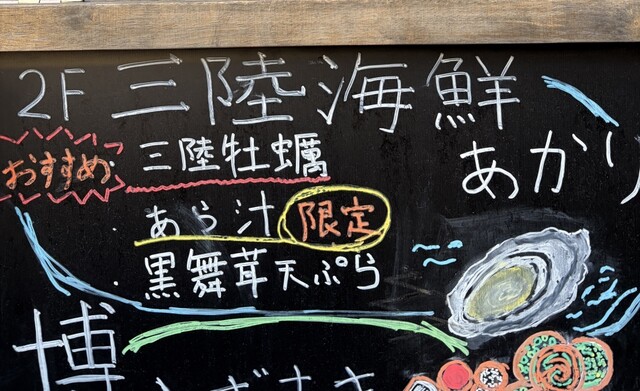 2F 三陸海鮮
あかり
おすすめ
・三陸牡蠣
・あら汁 限定
・黒舞茸天ぷら
博